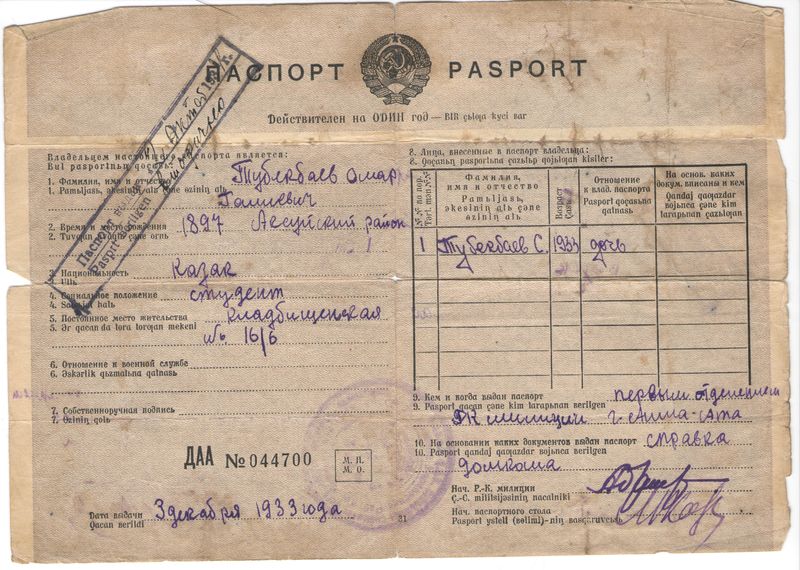 ПАСПОРТ PASPORT
Действителен на ОДИН год — BIR çьlƣa kyci bar
Владельцем паспорта является:
Bul pasportьnꞑ
1. Фамилия, имя и отчество Тубекбаев Омар
1. Pamiljasь, əkesiniꞑ atь çəne əziniꞑ atь Галиевич
2. Время и место рождения 1897 Аксуйский район
2. çəne ornь
3. Национальность Казак
3. Ulb
4. Социальное положение студент
4. halь
5. Постоянное место жительства Кладбищенская
5. Ər qacan da tora torƣan mekeni № 16/б
6. Отношение к военной службе
6. Əskərlik qьzmatьna qatnasь
7. Собственноручная подпись
7. Əziniꞑ qolь
ДАА № 044700
М. П.
М. О.
Дата выдачи 3 декабря 1933 года
Qacan berildi
Паспорт
Pasport berilgen
Октября
8. Лица, внесенные в паспорт владельца:
8. Qoçanьꞑ pasportьna çazьlьp qojьlƣan kisiler:
№№ по пор.
Tərt. nom №№
Фамилия, имя и отчество
Pamiljasь, əkesiniꞑ çəne əziniꞑ atь
Возраст
Çasь
Отношение к влад. паспорта
Pasport qoçaƣa qatnasь
На основ. каких докум. вписаны и кем
Qandaj qaƣazdar bojьnca çəne kim tarapьnan çazьlƣan
1 Тубекбаев С. 1933 дочь
9. Кем и когда выдан паспорт первым отделением
9. Pasport qacan çəne kim tarapьnan berilgen РК милиции г. Алма-Ата
10. На основании каких документов выдан паспорт справка
10. Pasport qandaj qaƣazdar bojьnca berilgen домкома
Нач. Р.-К. милиции
Ç.-C. militsijəsiniꞑ nacalniki
Нач. паспортного стола
Pasport ysteli (bəlimi)-niꞑ basqaruvcь
21